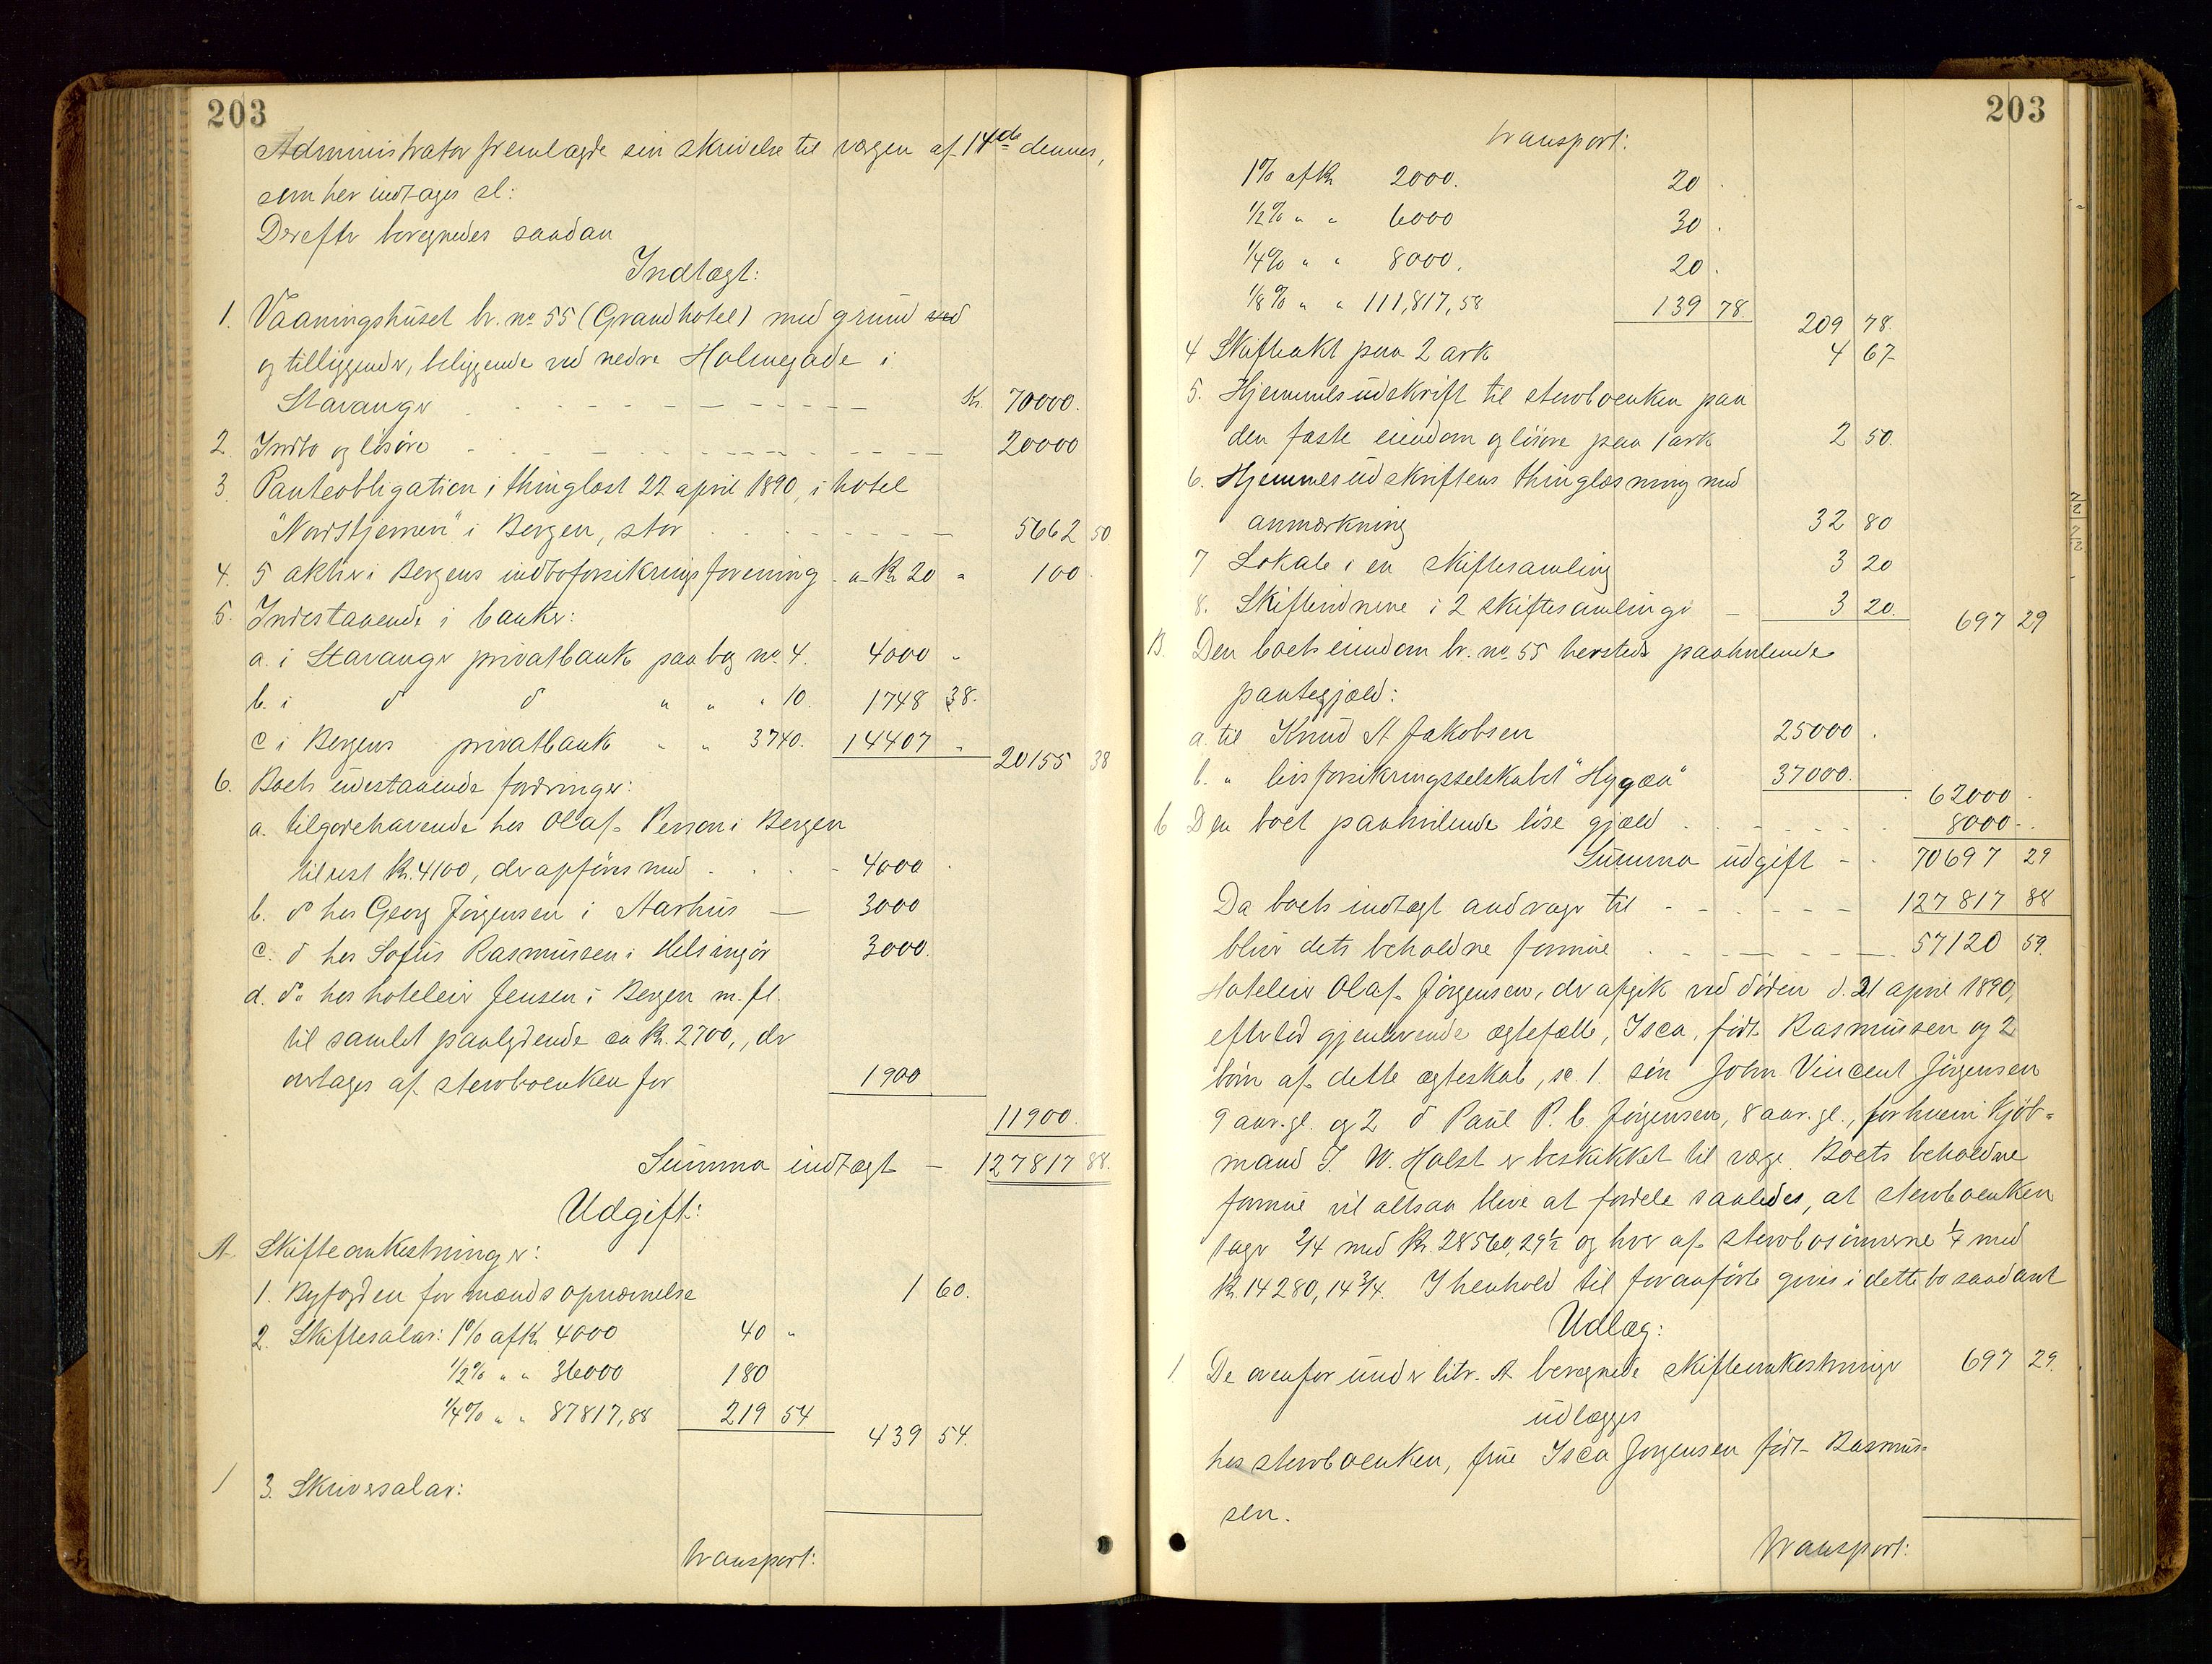 203
Administrator fremlagde sin skrivelse til vergen af 14de dennes,
som her indtages sl:
Derefter beregnedes saadan
Indtægt:
1. Vaaningshuset br. no 55 (Grand hotel) med grund ved
og tilliggender, beliggende ved nedre Holmegade i
Stavanger Kr. 70000.
2. Indbo og løsøre 20000
3. Panteobligation, thinglæst 22 april 1890, i hotel
"Nordstjernen" i Bergen, stor 5662 50
4. 5 aktier i Bergens indboforsikringsforening a Kr 20 " 100.
5. Indestaaende i banker:
a. i Stavanger privatbank paa bog no. 4. 4000 "
b. i do do " " " 10. 1748 38.
c i Bergens privatbank " " 3740. 14407 " 20155 38
6. Boets udestaaende fordringer:
a. tilgodehavende hos Olaf Person i Bergen
til rest Kr. 4100, der opføres med 4000
b. do hos Georg Jørgensen i Aarhus — 3000
c. do hos Sofus Rasmussen i Helsingør 3000.
d. do hos hoteleier Jensen i Bergen m. fl.
til samlet paalydende ca Kr. 2700,, der
overtages af sterboenken for 1900
11900.
Summa indtægt — 127817 88.
Udgift:
A. Skifteomkostninger:
1. Byfogden for mænds opnævnelse 1 60.
2. Skiftesalær: 1% af Kr 4000 40 "
1/2% " " 36000 180
1/4% " " 87817,88 219 54
439 54.
3. Skriversalær:
Transport:
203
Transport:
1% af Kr 2000. 20.
1/2% " " 6000 30.
1/4% " " 8000. 20.
1/8% " " 111,817,58 139 78.
209 78.
4 Skifteakt paa 2 ark 4 67
5. Hjemmelsudskrift til sterboenken paa
den faste eiendom og løsøre paa 1 ark 2 50.
6. Hjemmelsudskriftens thinglæsning med
anmærkning 32 80
7 Lokale i en skiftesamling 3 20
8. Skiftevidnerne i 2 skiftesamlinger — 3 20. 697 29
B. Den boets eiendom br. no. 55 hersteds paahvilende
pantegjæld:
a. til Knud A Jakobsen 25000.
b. " livsforsikringsselskabet "Hygæa" 37000. 62000.
C Den boet paahvilende løse gjæld 8000.
Summa udgift - 70697 29
Da boets indtægt andrager til 127817 88
bliver dets beholdne formue 57120 59.
Hoteleier Olaf Jørgensen, der afgik ved døden d. 21 april 1890,
efterlod gjenlevende ægtefælle, Isca, født Rasmussen og 2
børn af dette ægteskab, sc. 1. søn John Vincent Jørgensen
9 aar gl. og 2 do Paul P. C. Jørgensen, 8 aar. gl., for hvem Kjøb-
mand J. W. Holst er beskikket til værge. Boets beholdne
formue vil altsaa blive at fordele saaledes, at sterboenken
tager 2/4 med Kr. 28560,29½ og hver af sterbosønnerne ¼ med
Kr. 14280,14¾. I henhold til foranførte gives i dette bo saadant
Udlæg:
1. De ovenfor under litr. A beregnede skifteomkostninger 697 29.
udlægges
hos sterboenken, frue Isca Jørgensen født Rasmus-
sen.
Transport: